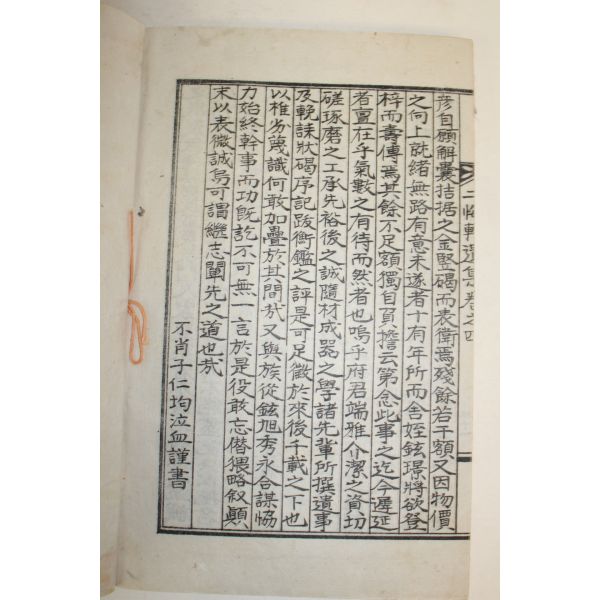 二悔軒遺集卷之四
彦自願解囊拮据之金竪碣而表衛焉殘餘若干額又因物價
之向上就緖無路有意未遂者十有年所而舍姪鉉璟將欲登
梓而壽傳焉其餘不足額獨自負擔云第念此事之迄今遲延
者亶在乎氣數之有待而然者也嗚乎府君端雅介潔之資切
磋琢磨之工承先裕後之誠隨材成器之學諸先輩所撰遺事
及輓誄狀碣序記跋衡鑑之評是可足徵於來後千載之下也
以椎劣蔑識何敢加疊於其間㢤又與族從鉉旭秀永合謀恊
力始終幹事而功旣訖不可無一言於是役敢忘僭猥略叙顚
末以表微誠烏可謂繼志闡先之道也㢤
不肖子仁均泣血謹書